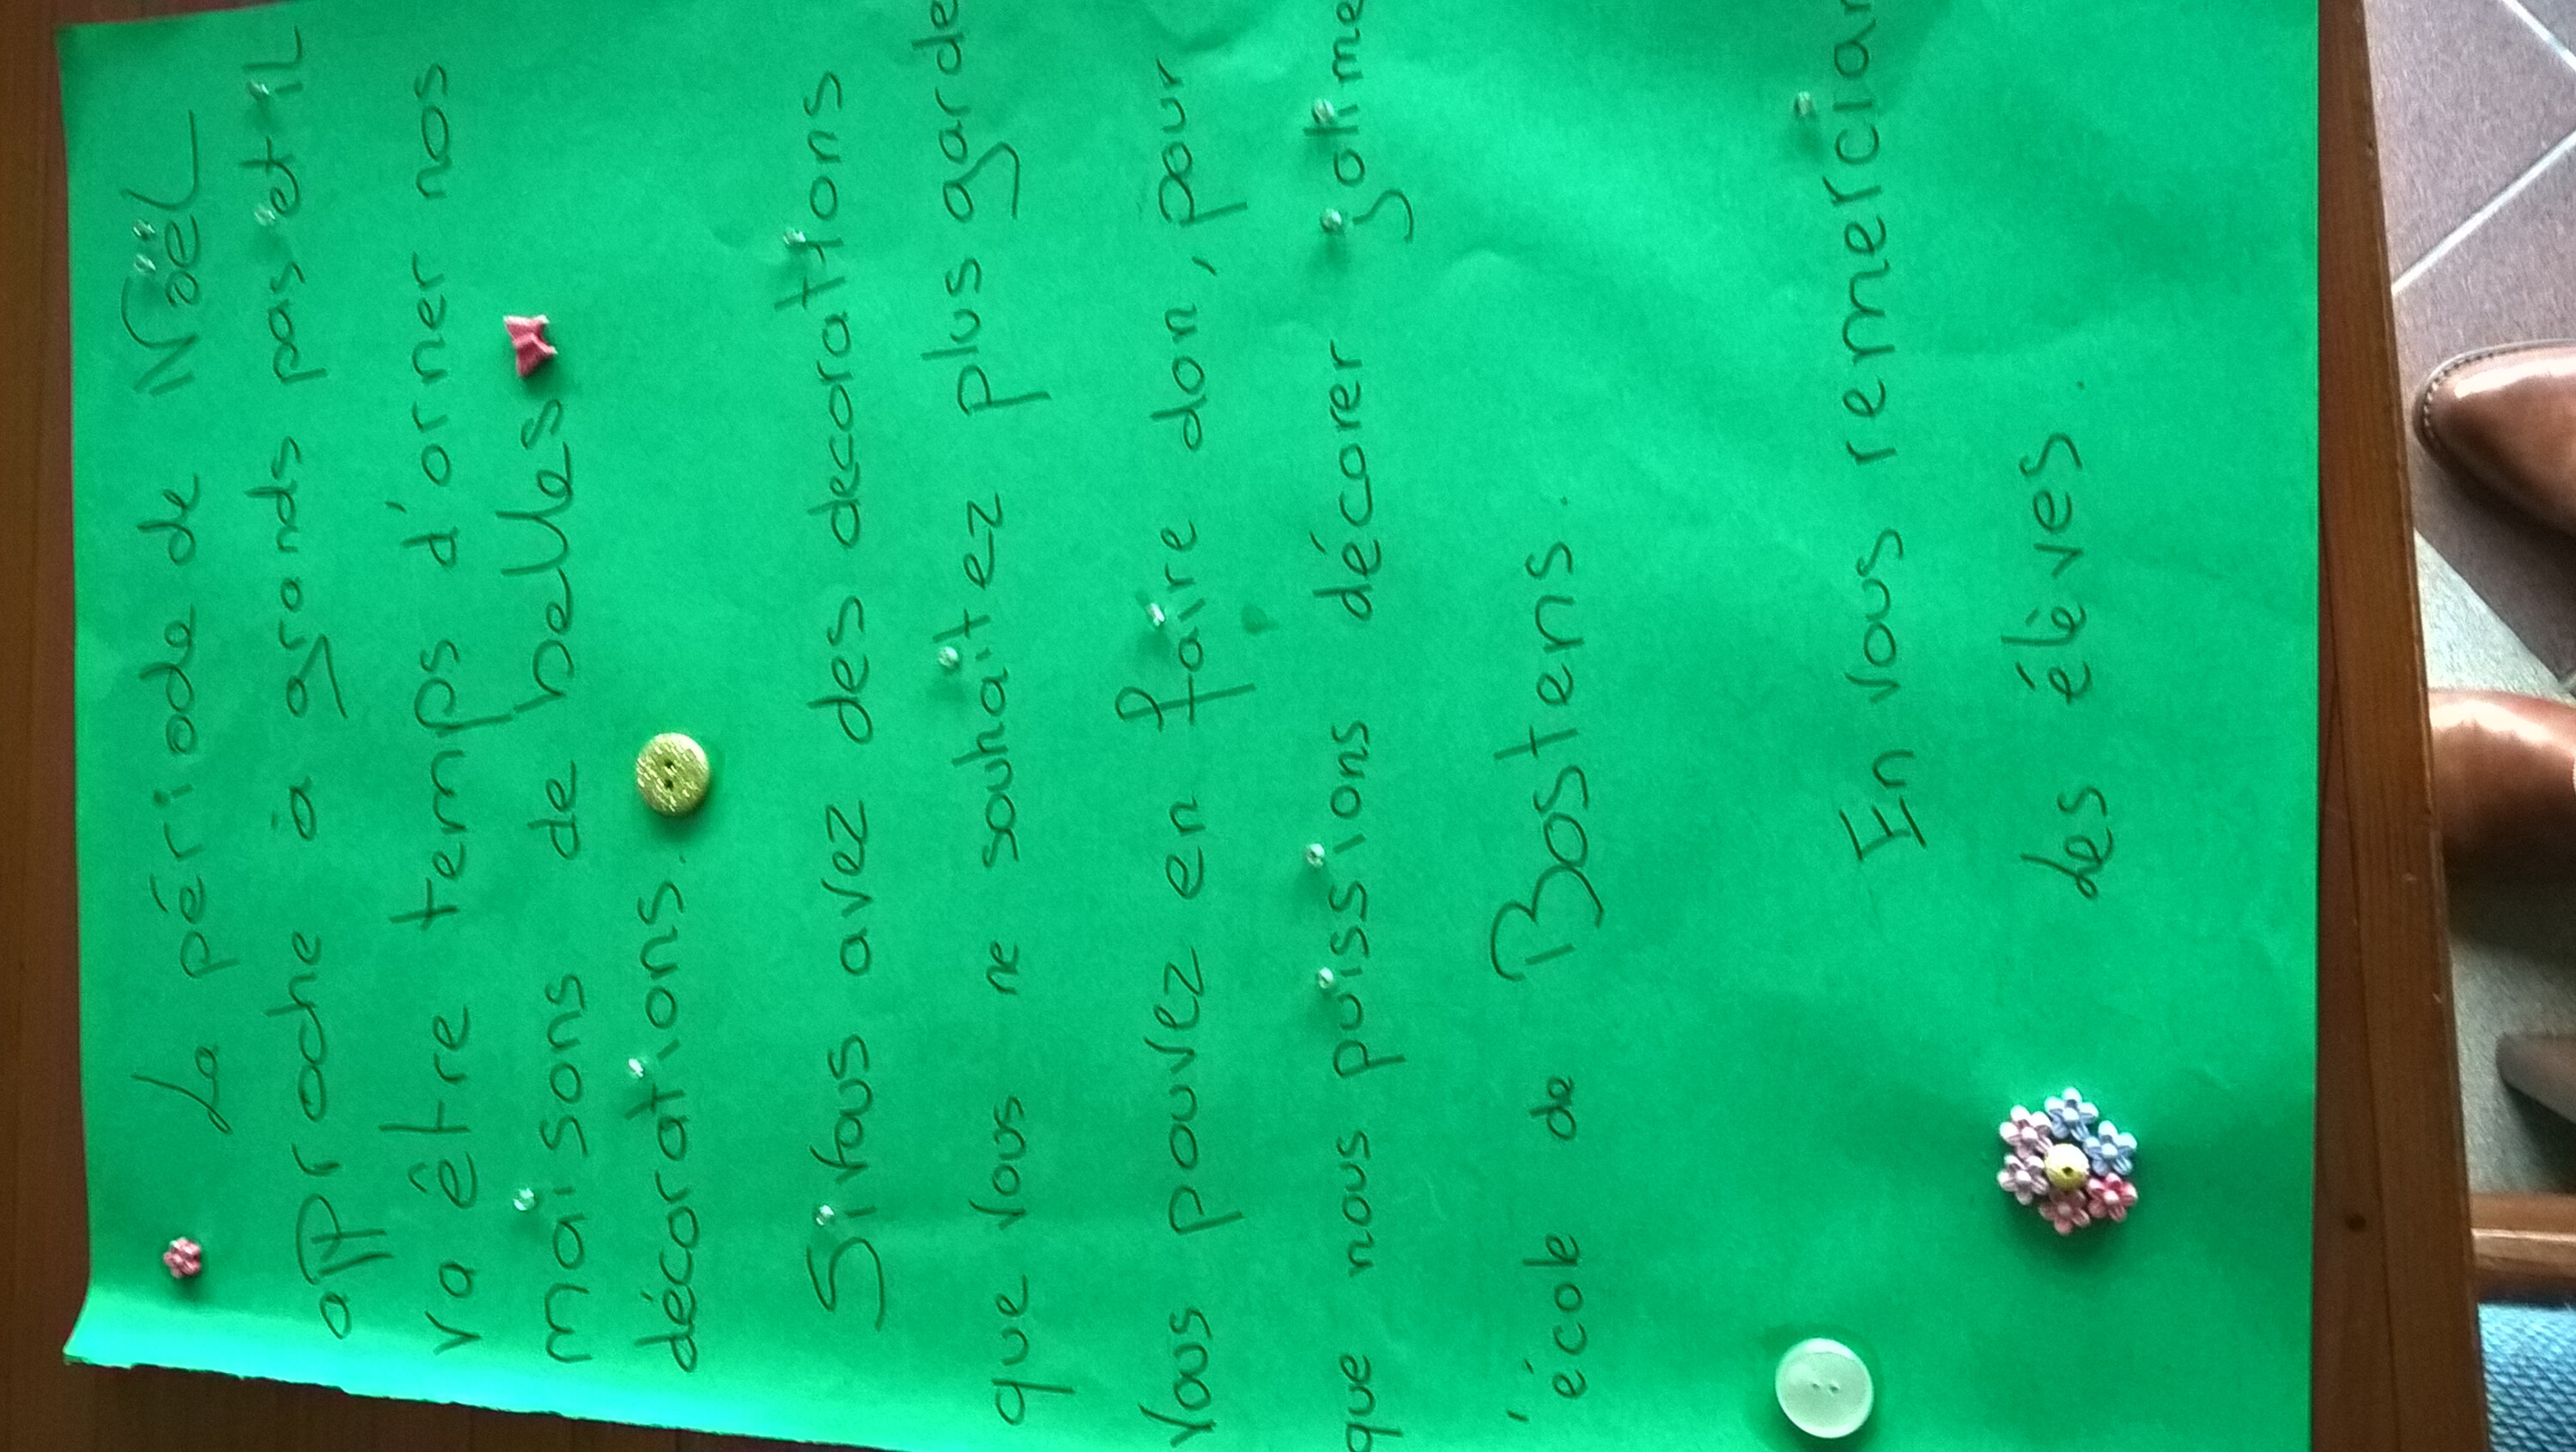 La période de Noël
approche à grands pas et il
va être temps d'orner nos
maisons de belles
décorations.
Si vous avez des decorations
que vous ne souhaitez plus garde
vous pouvez en faire don, pour
que nous puissions décorer jolime
'école de Bostens.
En vous remercian
des élèves.